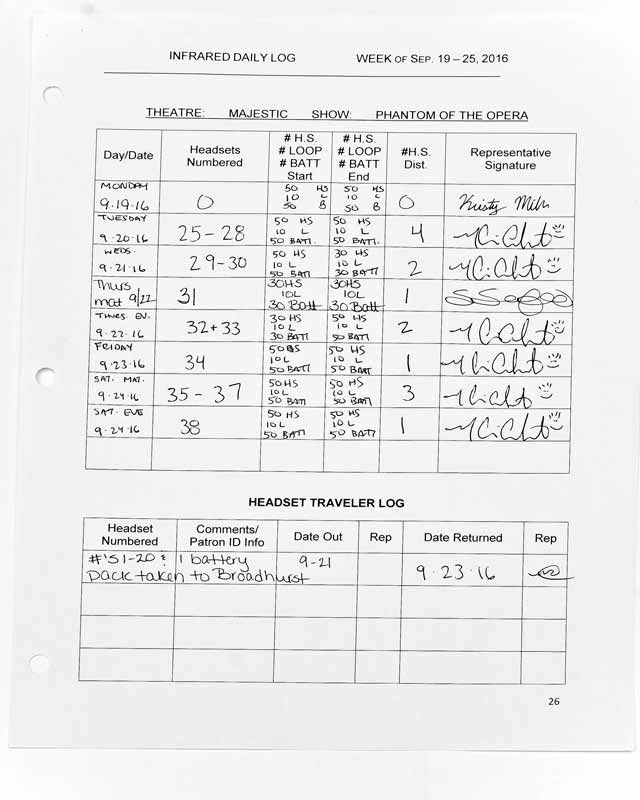 INFRARED DAILY LOG WEEK OF SEP. 19 – 25, 2016
THEATRE: MAJESTIC SHOW: PHANTOM OF THE OPERA
Day/Date Headsets Numbered # H.S. # LOOP # BATT Start # H.S. # LOOP # BATT End #H.S. Dist. Representative Signature
MONDAY 9.19.16 0 50 HS 10 L 50 B 50 HS 10 L 50 B 0 Kristy
TUESDAY 9.20.16 25-28 50 HS 10 L 50 BATT. 50 HS 10 L 50 BATT. 4
WEDS. 9.21.16 29-30 50 HS 10 L 50 BATT 30 HS 10 L 30 BATT 2
Thurs mat 9/22 31 30HS 10L 30 Batt 30HS 10L 30 Batt 1
THURS. EV. 9.22.16 32+33 30 HS 10 L 30 BATT 50 HS 10 L 50 BATT 2
FRIDAY 9.23.16 34 50 HS 10 L 50 BATT 50 HS 10 L 50 BATT 1
SAT. MAT. 9.24.16 35-37 50HS 10 L 50 BATT 50 HS 10 L 50 BATT 3
SAT. EVE 9.24.16 38 50 HS 10 L 50 BATT 50 HS 10 L 50 BATT 1
HEADSET TRAVELER LOG
Headset Numbered Comments/ Patron ID Info Date Out Rep Date Returned Rep
#'S 1-20 & 1 battery 9-21
pack taken to Broadhurst 9.23.16
26